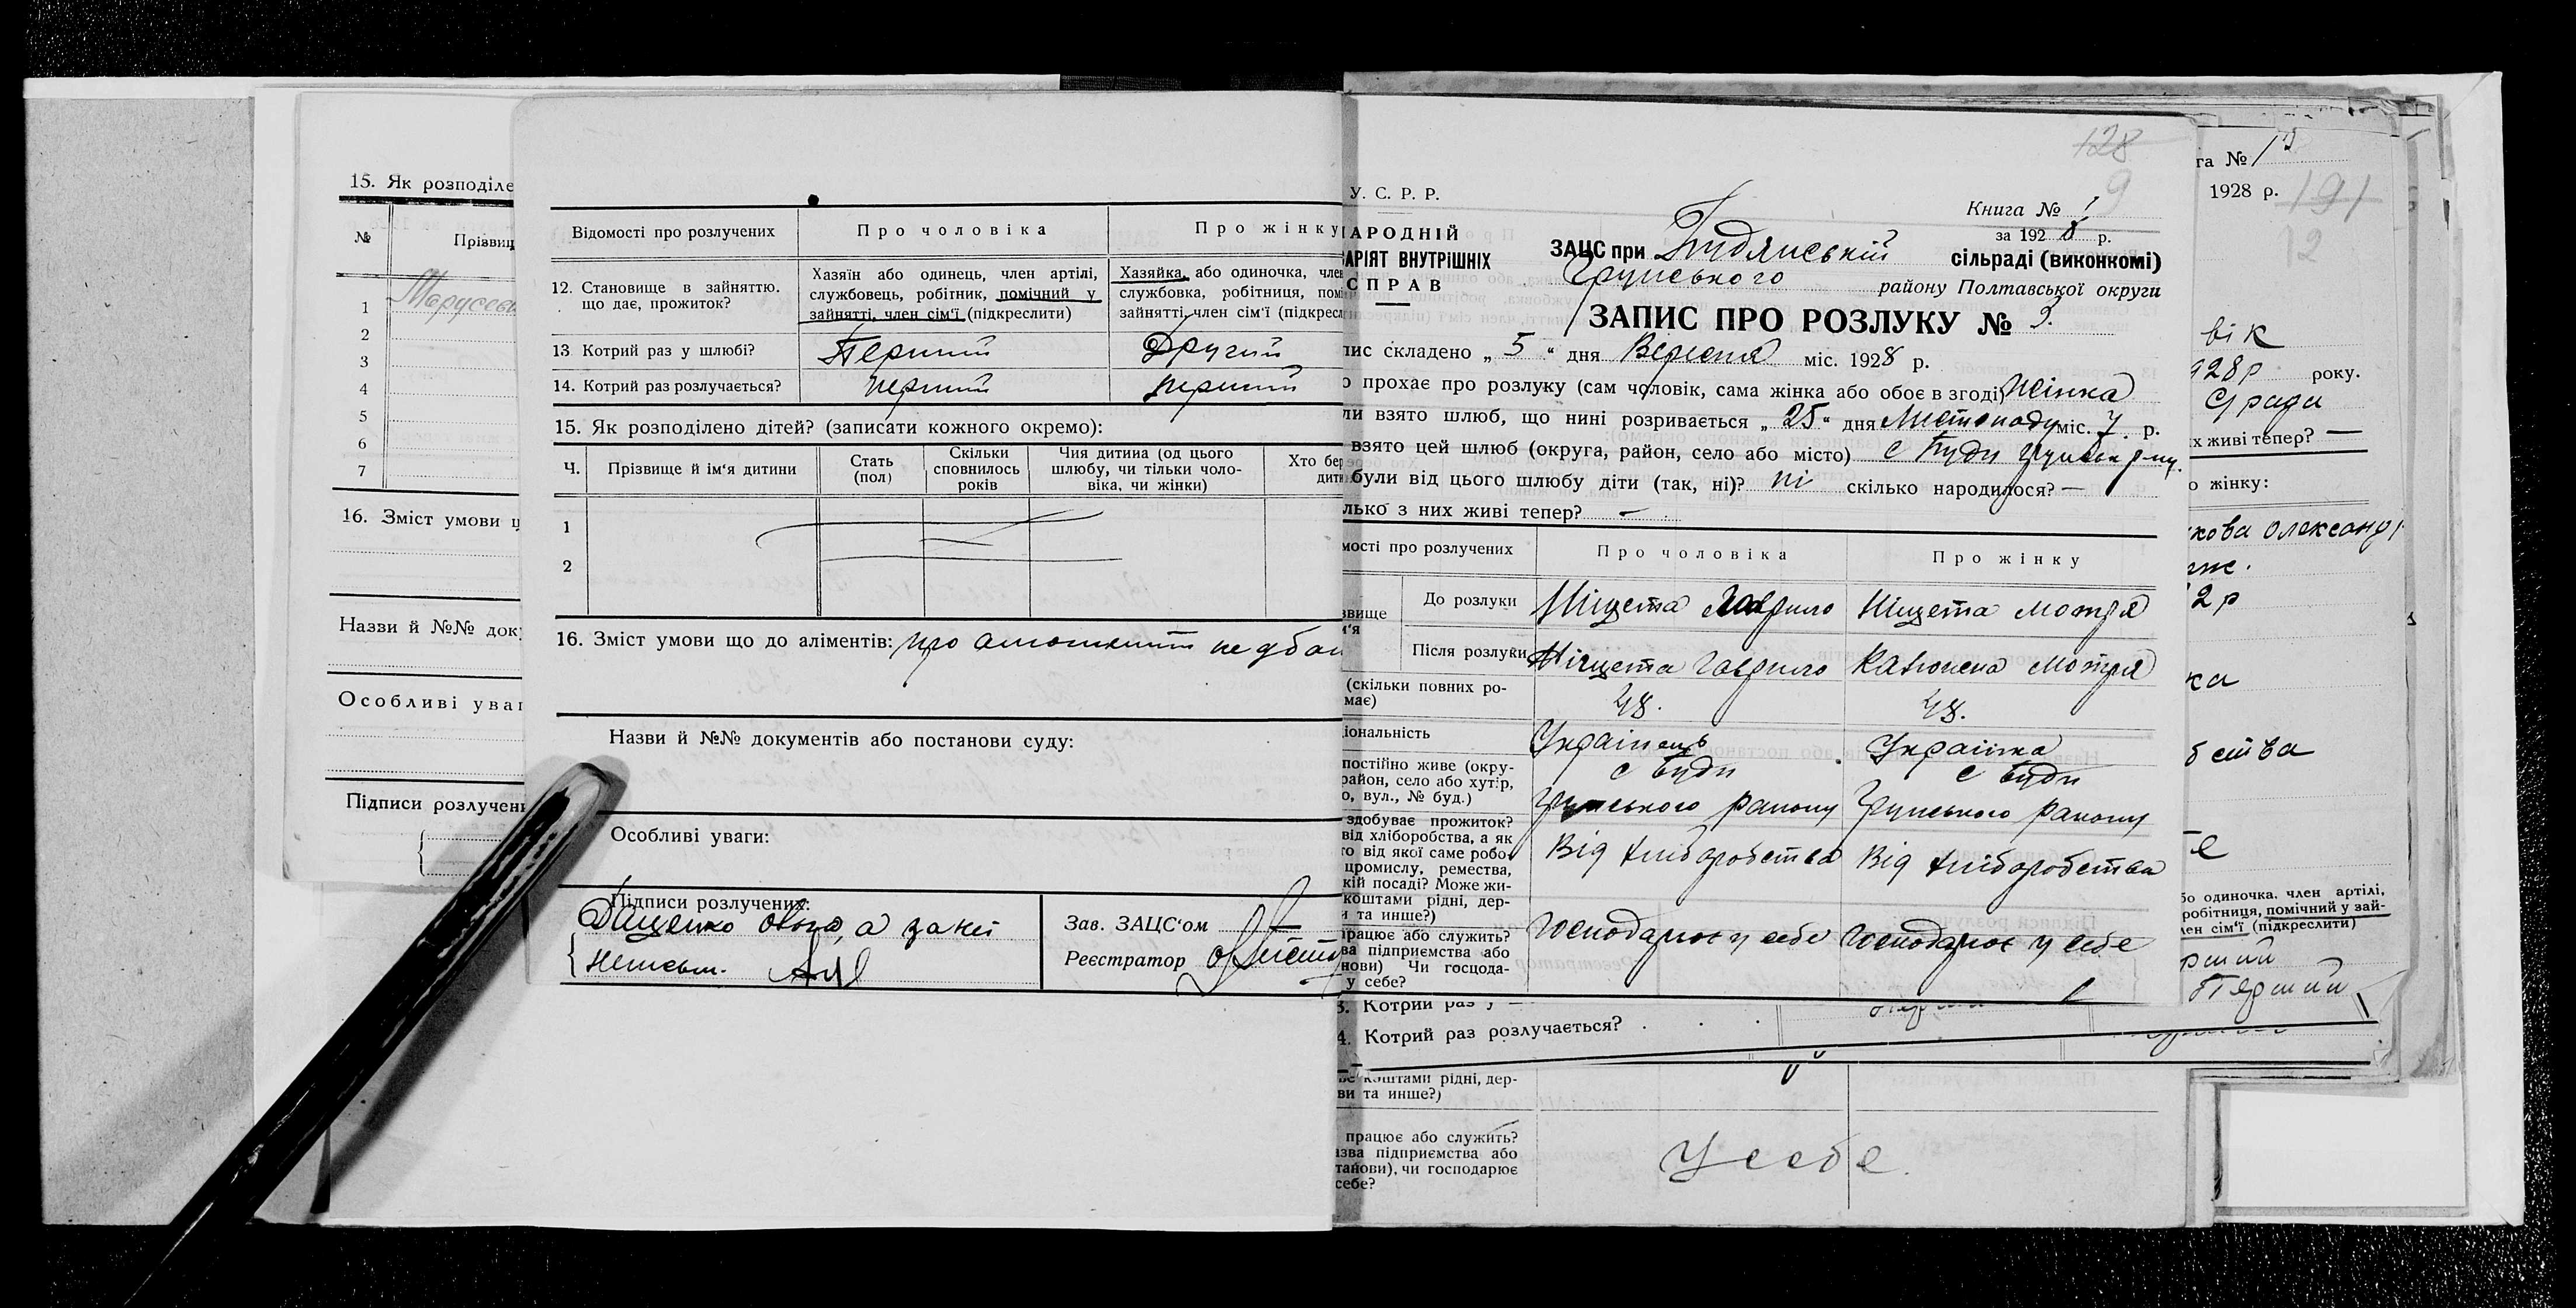 15. Як розподіле
№
Прізвищ
1
2
3
4
5
6
7
16. Зміст умови щ
Назви й №№ док
Особливі уваг
Підписи розлучен
Відомості про розлучених
Про чоловіка
Про жінку
12. Становище в зайняттю.
що дає, прожиток?
Хазяїн або одинець, член артілі,
службовець, робітник, помічний у
зайнятті, член сім'ї (підкреслити)
Хазяйка або одиночка, член
службовка, робітниця, помі
зайнятті, член сім'ї (підкресл
13. Котрий раз у шлюбі?
Перший
Другий
14. Котрий раз розлучається?
перший
перший
15. Як розподілено дітей? (записати кожного окремо):
Ч.
Прізвище й ім'я дитини
Стать
(пол)
Скільки
сповнилось
років
Чия дитина (од цього
шлюбу, чи тільки чоло-
віка, чи жінки)
Хто бер
дити
1
2
16. Зміст умови що до аліментів: про
Назви й №№ документів або постанови суду:
Особливі уваги:
Підписи розлучених:
а за неї
неписьм.
Зав. ЗАЦС'ом
Реєстратор
128
9
У. С. Р. Р.
АРОДНІЙ
АРІЯТ ВНУТРІШНІХ
СПРАВ
Книга № 1
за 1928 р.
ЗАЦС при Будянській сільраді (виконкомі)
Грунського району Полтавської округи
ЗАПИС ПРО РОЗЛУКУ № 3.
пис складено „ 5 “ дня Вересня міс. 1928 р.
о прохає про розлуку (сам чоловік, сама жінка або обоє в згоді) Жінка
ли взято шлюб, що нині розривається „ 25 “ дня Листопаду міс. 7 р.
взято цей шлюб (округа, район, село або місто) с Буди Грунськ р-ну.
були від цього шлюбу діти (так, ні)? ні скілько народилося? —
лько з них живі тепер? —
мості про розлучених
Про чоловіка
Про жінку
звище
м'я
До розлуки
Нищета Гаврило
Нищета Мотря
Після розлуки
Нищета Гаврило
Мотря
(скільки повних ро-
має)
48.
48.
іональність
Українець
Українка
постійно живе (окру-
район, село або хутір,
о, вул., № буд.)
с Буди
Грунського району
с Буди
Грунського району
здобуває прожиток?
від хліборобства, а як
то від якої саме робо-
промислу, ремества,
кій посаді? Може жи-
коштами рідні, дер-
и та инше?)
Від хліборобства
Від хліборобства
працює або служить?
ва підприємства або
нови) Чи господа-
у себе?
Господарює у себе
Господарює у себе
3. Котрий раз у
4. Котрий раз розлучається?
коштами рідні, дер-
ви та инше?)
працює або служить?
азва підприємства або
танови), чи господарює
себе?
У себе.
га № 13
1928 р.
191
12
вік
928р року.
Сʼрада
х живі тепер? —
о жінку:
кова Олександр
2р
ка
бства
е
бо одиночка, член артілі,
робітниця, помічний у зай-
лен сім'ї (підкреслити)
рший
Перший